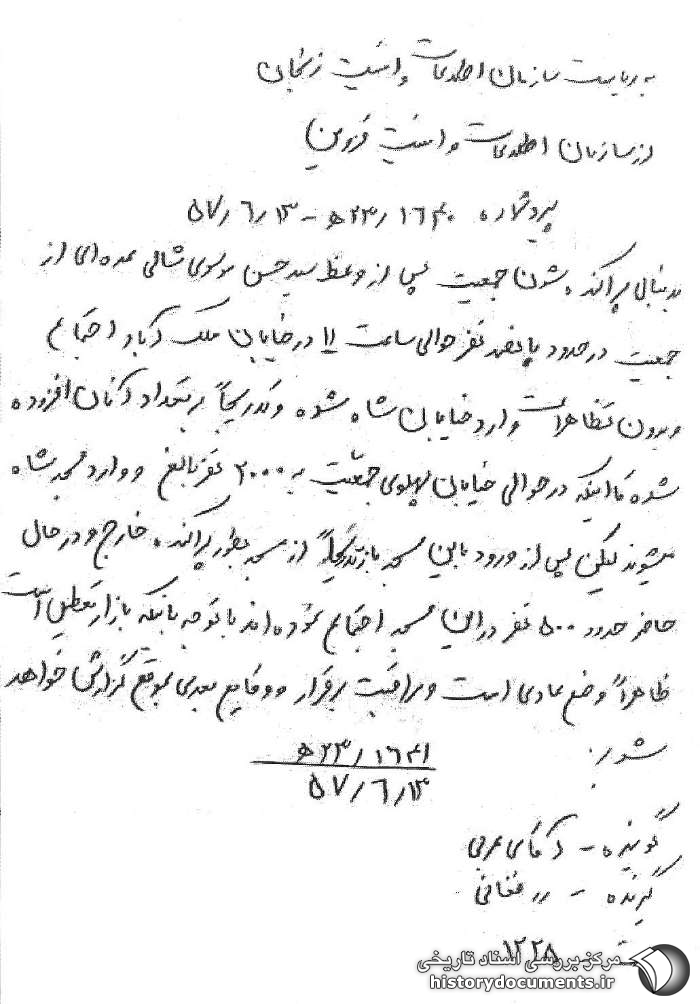 به ریاست سازمان اطلاعات و امنیت زنجان
از سازمان اطلاعات و امنیت قزوین
پیرو شماره ۱۶۴۰/۲۳ه‍ - ۵۷/۶/۱۳
بدنبال پراکنده شدن جمعیت پس از وعظ سید حسن موسوی شالی عده‌ای از
جمعیت در حدود پانصد نفر حوالی ساعت ۱۱ در خیابان ملک آباد اجتماع
و بدون تظاهرات وارد خیابان شاه شده و تدریجاً بر تعداد آنان افزوده
شده تا اینکه در حوالی خیابان پهلوی جمعیت به ۲۰۰۰ نفر بالغ و وارد مسجد شاه
میشوند لیکن پس از ورود باین مسجد باز تدریجاً از مسجد بطور پراکنده خارج و در حال
حاضر حدود ۵۰۰ نفر در این مسجد اجتماع نموده‌اند با توجه باینکه بازار تعطیل است
ظاهراً وضع عادی است و مراقبت برقرار و وقایع بعدی بموقع گزارش خواهد
شد.
۱۶۴۱/۲۳ه‍
۵۷/۶/۱۳
گوینده - آقای عربی
گیرنده - رر فغانی
۱۲۲۸
مرکز بررسی اسناد تاریخی
historydocuments.ir